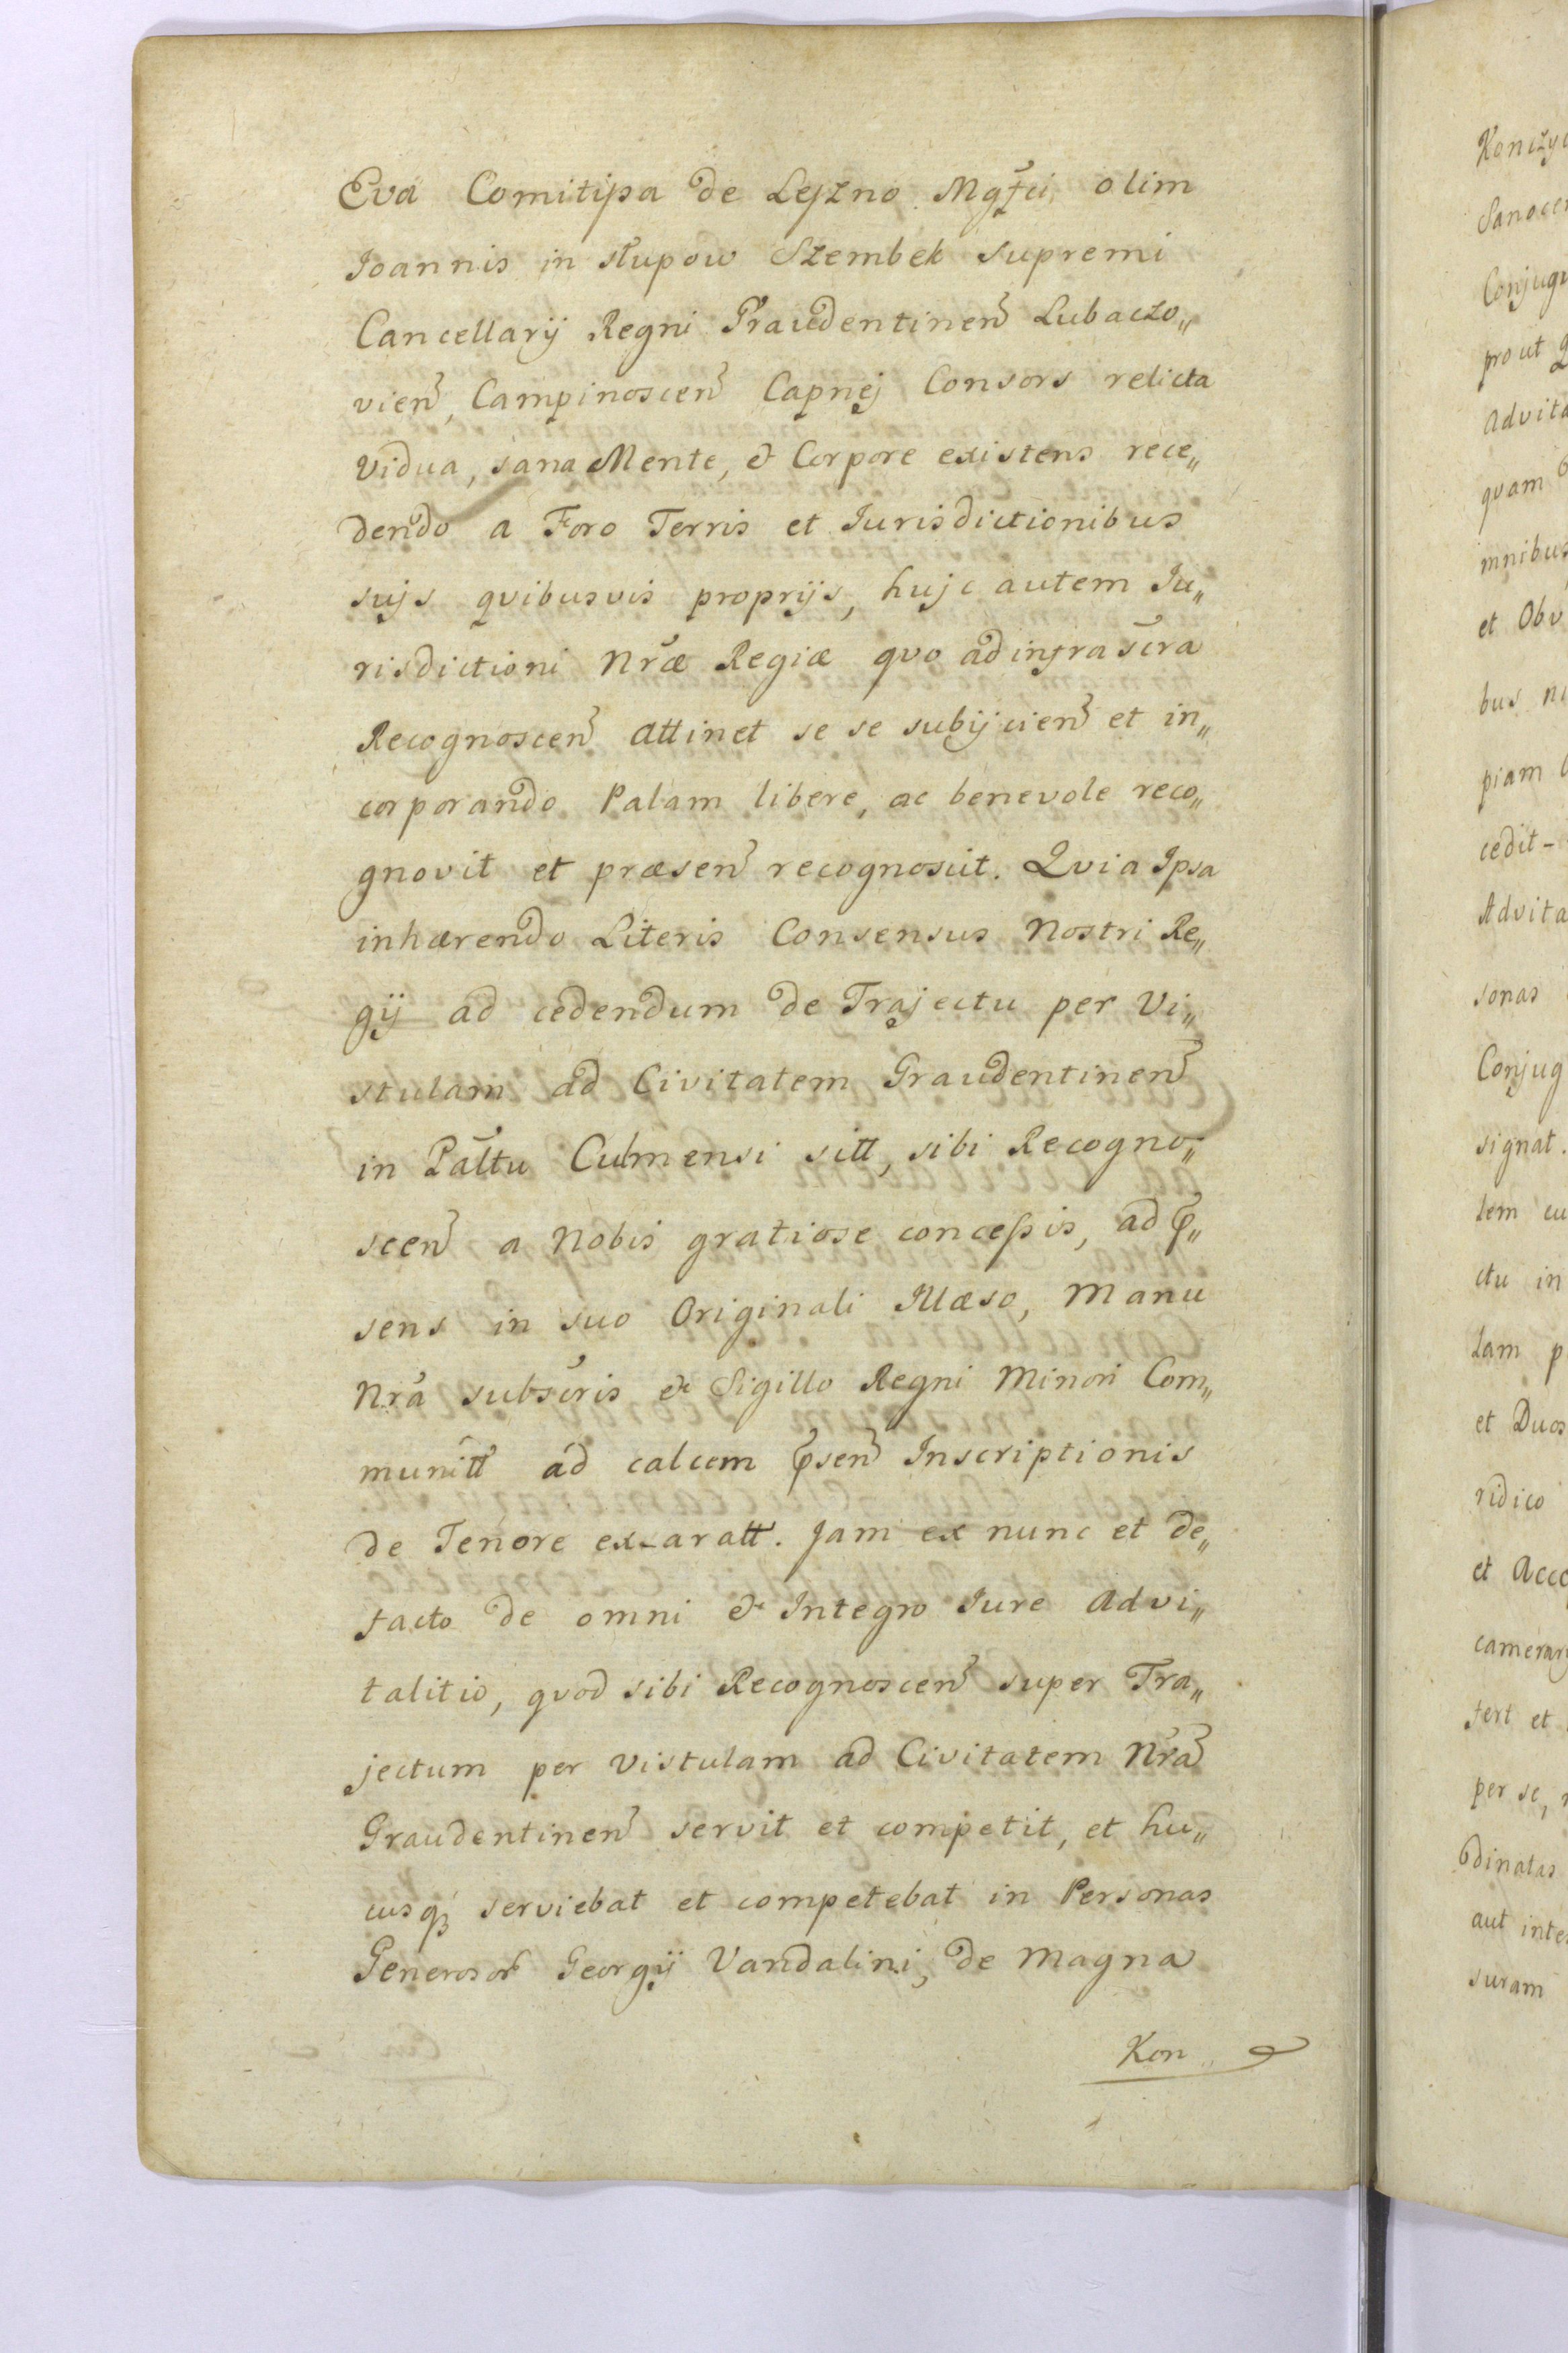 Eva Comitissa de Leszno Mgfci olim
Joannis in słupow Szembek Supremi
Cancellarij Regni Graudentinen Lubaczo„
vien, Campinoscen Capnej Consors relicta
Vidua, sana Mente, & Corpore existens rece„
dendo a Foro Terris et Iurisdictionibus
sujs qvibusvis proprijs, hujc autem Iu„
risdictioni Nræ Regiæ qvo ad infra scra
Recognoscen attinet se se subijcien et in„
corporando Palam libere, ac benevole reco„
gnovit et præsen recognoscit. Qvia Ipsa
inhærendo Literis Consensus Nostri Re„
gij ad cedendum de Trajectu per Vi„
stulam ad Civitatem Graudentinen
in Palttu Culmensi sitt, sibi Recogno„
scen a Nobis gratiose concessis, ad p„
sens in suo Originali Illæso, Manu
Nra subscris & Sigillo Regni Minori Com„
munitt ad calcem psen Inscriptionis
de Tenore exaratt. Jam ex nunc et de„
facto de omni & Integro Iure Advi„
talitio, qvod sibi Recognoscen super Tra„
jectum per Vistulam ad Civitatem Nra
Graudentinen servit et competit, et hu„
cusq serviebat et competebat in Personas
Generosor Georgij Vandalini, de Magna
Kon
Sanocen
prout
Advita
qvam
mnibus
et Obv
bus
piam
cedit-
Advita
sonas
Conjug
signat.
ctu in
et Duos
ridico
camerarij
fert et
per se,
dinatas
aut inte
suram